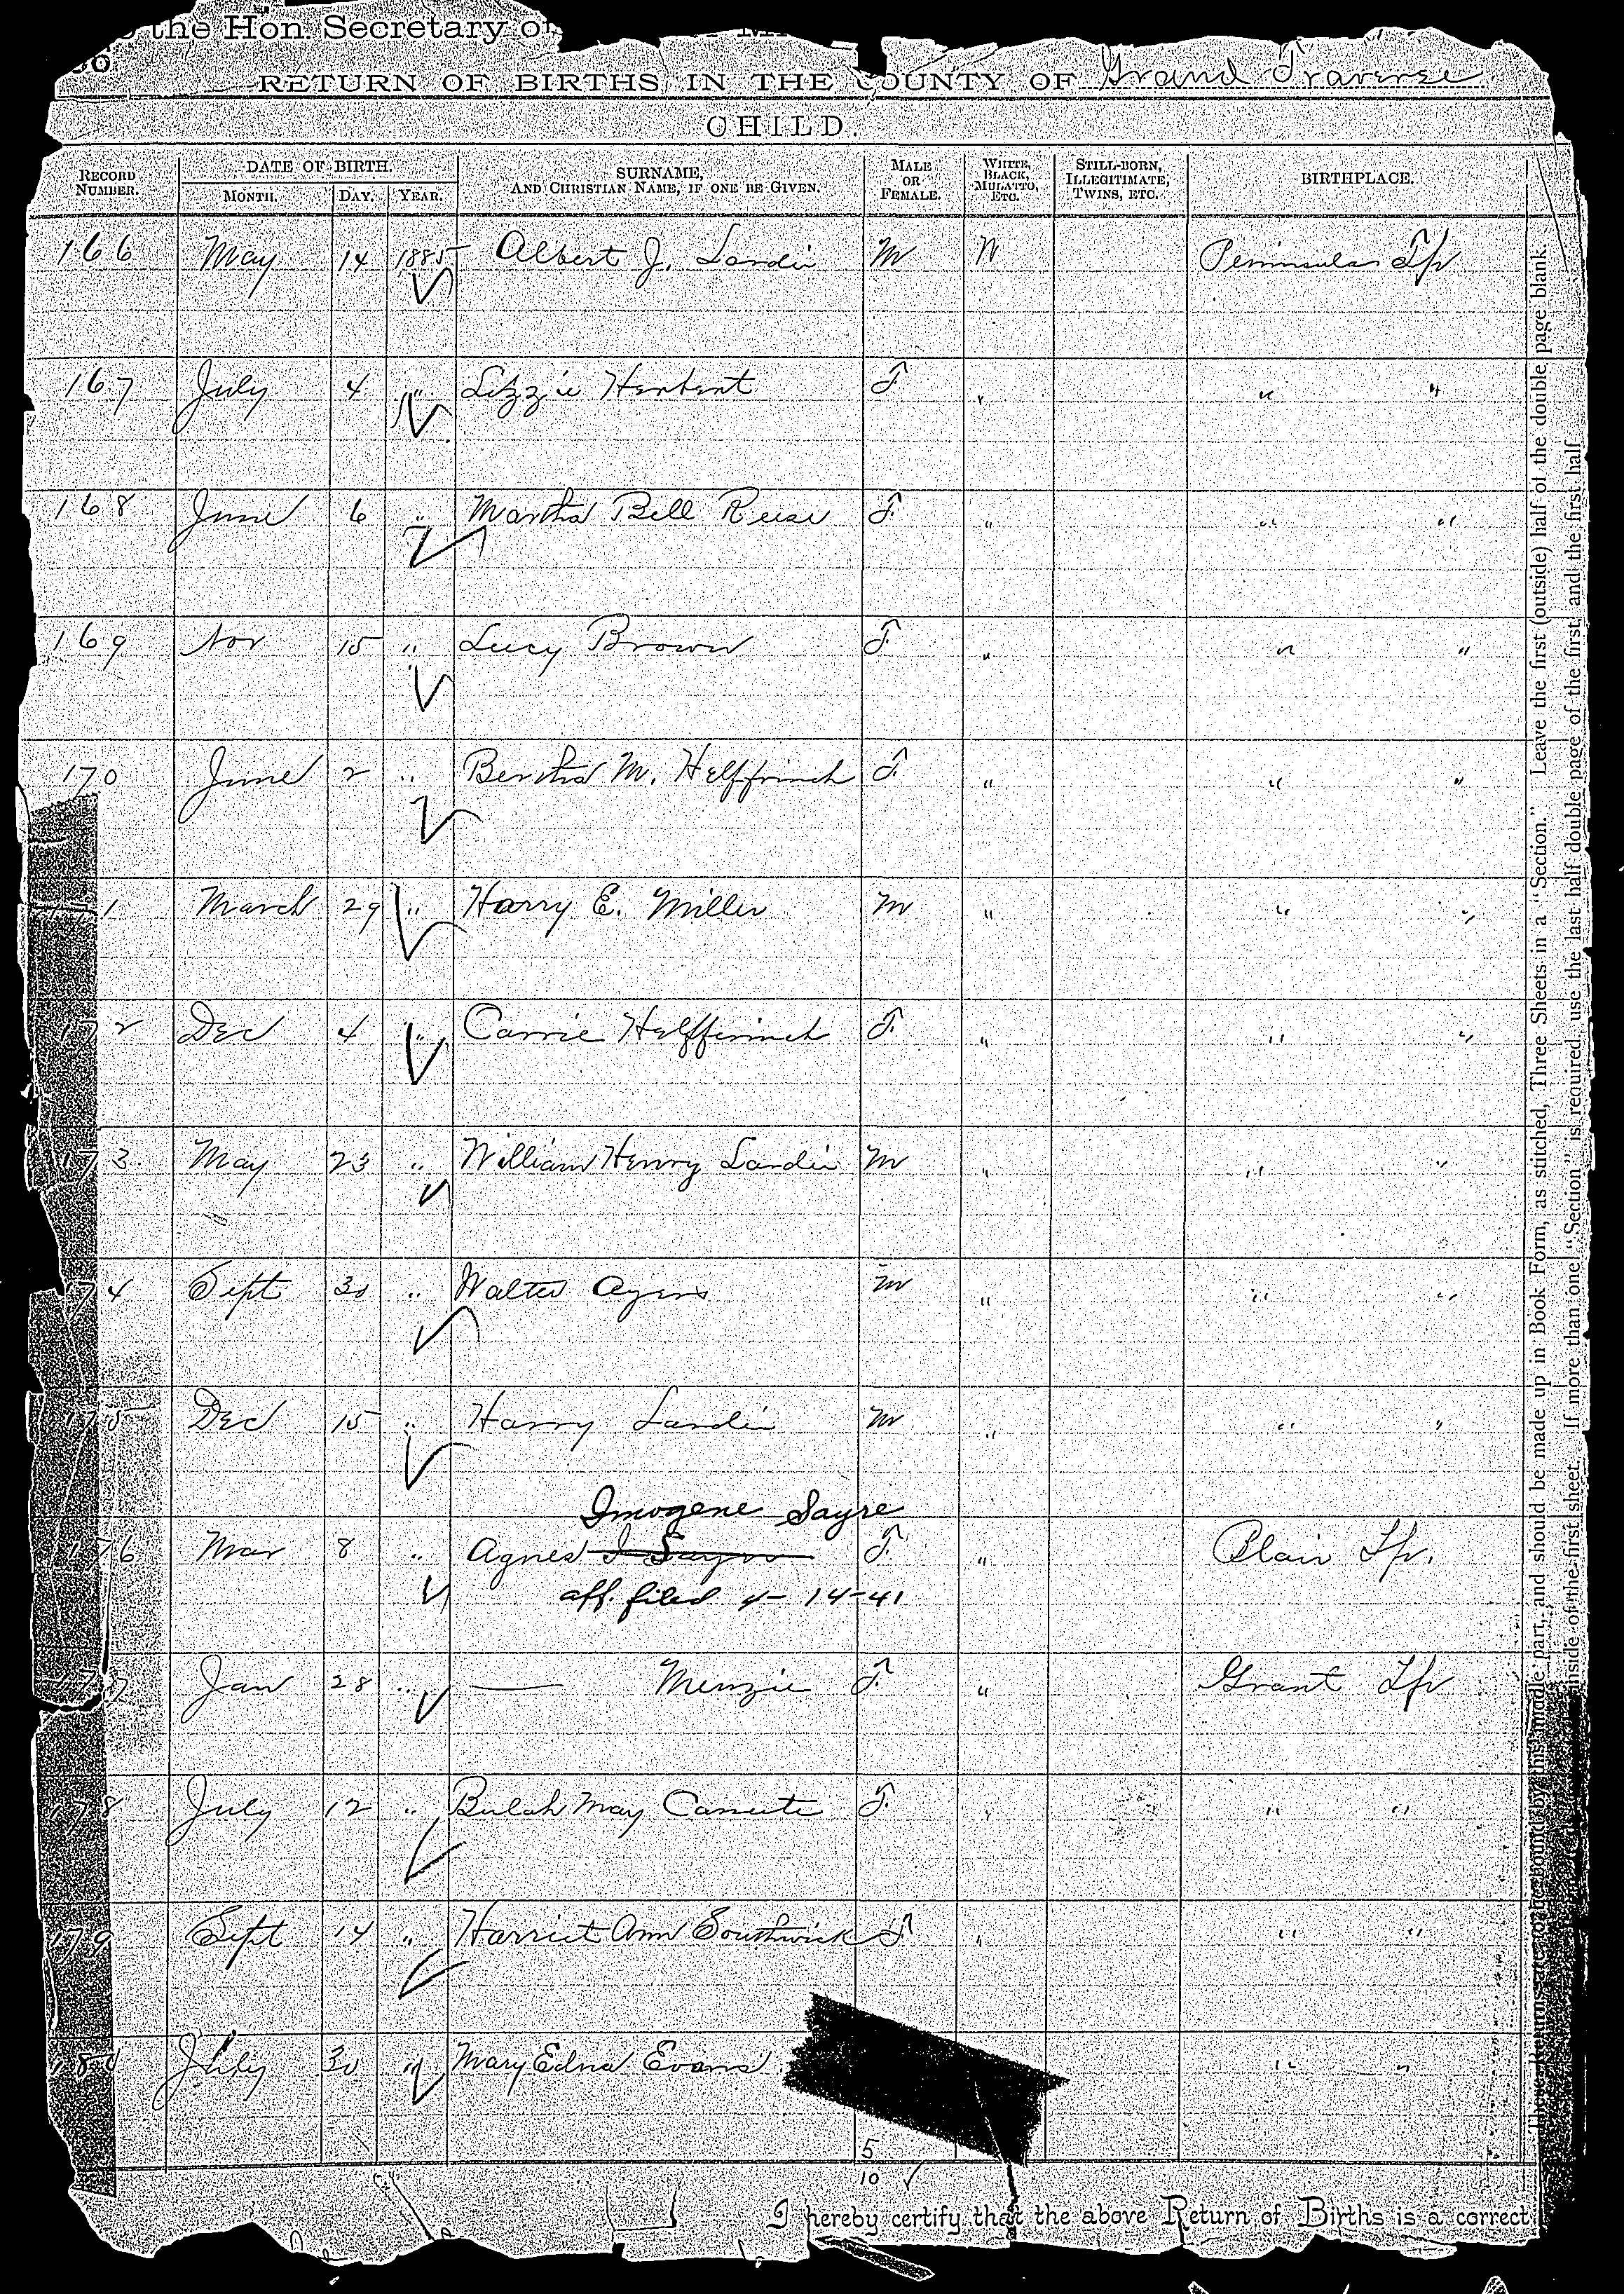 the Hon. Secretary of
RETURN OF BIRTHS IN THE COUNTY OF Grand Traverse
CHILD.
RECORD NUMBER. DATE OF BIRTH. MONTH. DAY. YEAR. SURNAME, AND CHRISTIAN NAME, IF ONE BE GIVEN. MALE OR FEMALE. WHITE, BLACK, MULATTO, ETC. STILL-BORN, ILLEGITIMATE, TWINS, ETC. BIRTHPLACE.
166 May 14 1885 Albert J. Lardie M W Peninsular Tp
167 July 4 " Lizzie Herbert F " " "
168 June 6 " Martha Bell Reese F " " "
169 Nov 15 " Lucy Brown F " " "
170 June 2 " Bertha M. Helffrinch F " " "
1 March 29 " Harry E. Miller M " " "
172 Dec 4 " Carrie Helfferinch F " " "
173. May 23 " William Henry Lardie M " " "
174 Sept 30 " Walter Ayers M " " "
175 Dec 15 " Harry Lardie M " " "
Imogene Sayre
176 Mar 8 " Agnes I Sayre F " Blair Tp.
aff. filed 4-14-41
177 Jan 28 " — Menzie F " Grant Tp
178 July 12 " Bulah May Canute F " " "
179 Sept 14 " Harriet Ann Southwick F " " "
180 July 30 " Mary Edna Evans " "
5
10 ✓
I hereby certify that the above Return of Births is a correct
These Returns are to be bound by this middle part, and should be made up in Book Form, as stitched, Three Sheets in a "Section." Leave the first (outside) half of the double page blank.
inside of the first sheet. If more than one "Section" is required, use the last half double page of the first, and the first half